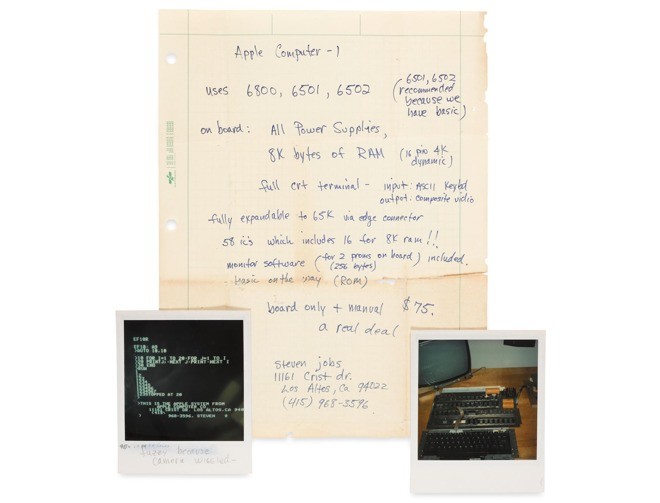 Apple Computer-1
uses 6800, 6501, 6502
(6501, 6502
recommended
because we
have basic)
on board: All Power Supplies,
8K bytes of RAM (16 pin 4K
dynamic)
full crt terminal - input: ASCII Keybd
output: composite vidio
fully expandable to 65K via edge connector
58 ic's which includes 16 for 8K ram!!
monitor software (for 2 proms on board) included.
(256 bytes)
basic on the way (ROM)
board only + manual $75.
a real deal
steven jobs
11161 Crist dr.
Los Altos, Ca 94022
(415) 968-3596
THIS IS THE APPLE SYSTEM FROM
LOS ALTOS, CA
968-3596, STEVEN
fuzzy because
camera wiggled-